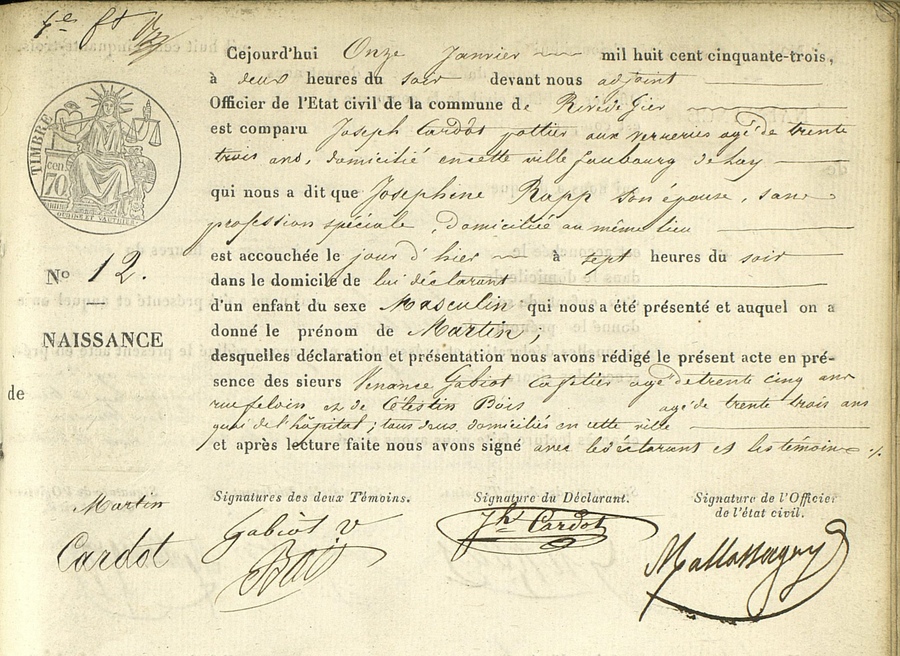 Cejourd'hui Onze Janvier mil huit cent cinquante-trois,
à deux heures du soir devant nous adjoint
Officier de l'Etat civil de la commune de Rive de Gier
est comparu Joseph Cardot pottier aux verreries agé de trente
trois ans, domicilié en cette ville faubourg de Lay
qui nous a dit que Josephine Rapp son épouse, sans
profession spéciale, domiciliée au même lieu
est accouchée le jour d'hier à sept heures du soir
dans le domicile de lui déclarant
d'un enfant du sexe Masculin qui nous a été présenté et auquel on a
donné le prénom de Martin,
desquelles déclaration et présentation nous avons rédigé le présent acte en pré-
sence des sieurs Venance Gabiot agé de trente cinq ans
rue et de Célestin Bois agé de trente trois ans
quai de l'hôpital; tous deux domiciliés en cette ville
et après lecture faite nous avons signé avec le déclarant et les témoins
TIMBRE
70
No 12.
NAISSANCE
de
Martin
Cardot
Signatures des deux Témoins.
Gabiot V
Bois
Signature du Déclarant.
Jh Cardot
Signature de l'Officier
de l'état civil.